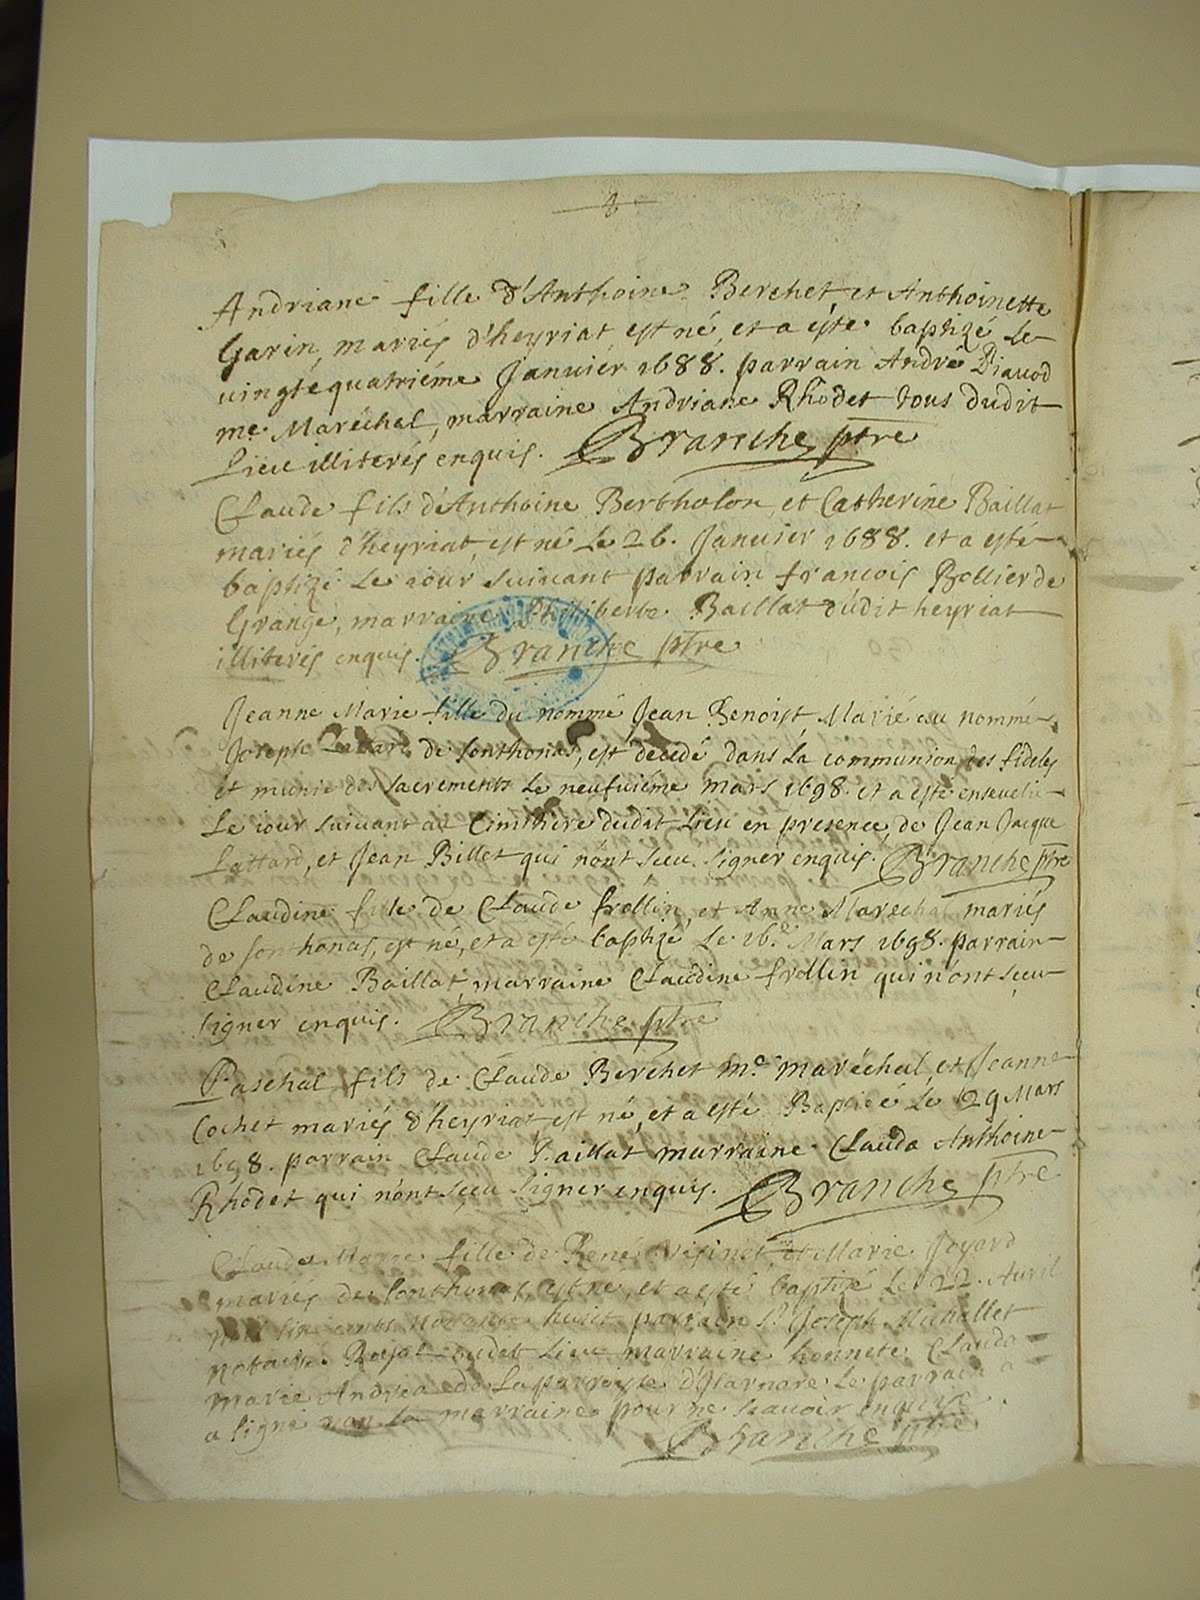 8
Andriane fille d'Anthoine Berchet et Anthoinette
Garin, mariés d'heyriat, est né, et a èste baptizé le
vingtequatriéme Janvier 1688. parrain André Piavod
me. Maréchal, marraine Andriane Rhodet tous dudit
Lieu illiterés enquis. Branche ptre
Claude fils d'Anthoine Bertholon, et Catherine Baillat
mariés d'heyriat, est né le 26. Janvier 1688. et a esté
baptizé le iour suivant parrain francois Bollier de
Grange, marraine Philiberte Baillat dudit heyriat
illiterés enquis. Branche ptre
Jeanne Marie fille du nommé Jean Benoist Marié au nommé
Joseph de Sonthonas, est decedé dans la communion des fideles
et munie des sacrements le neufuiéme mars 1698. et a esté enseveli
Le iour suivant au Cimithere dudit Lieu en presence, de Jean Jacque
Lattard, et Jean Billet qui n'ont sceu signer enquis. Branche ptre
Claudine fille de Claude frollin, et Anne Marechal mariés
de Sonthonas, est né, et a esté baptizé le 16.e Mars 1698. parrain
Claudine Baillat, marraine Claudine frollin qui n'ont sçeu
signer enquis. Branche ptre
Paschal fils de Claude Berchet me. maréchal, et Jeanne
Cochet mariés d'heyriat est né, et a esté Baptizé le 29 Mars
1698. parrain Claude Baillat marraine Clauda Anthoine
Rhodet qui n'ont sçeu signer enquis. Branche ptre
Claude Marie fille de René et Marie Joyard
mariés de Sonthonas, est né, et a esté baptizé le 22. Avril
mil six cents huict parrain Sr Joseph Michallet
notaire Royal dudit Lieu marraine honnete Clauda
marie Andrea de la parroisse le parrain a
a signé non la marraine pour ne scavoir enquise
Branche ptre